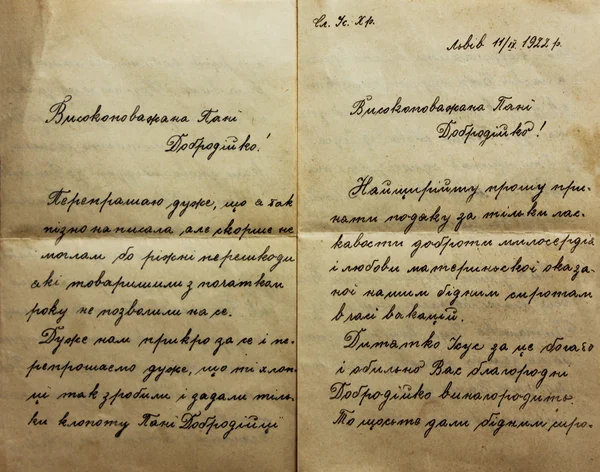 Високоповажана Пані
Добродійко!
Перепрашаю дуже, що а так
пізно написала, але скорше не
моглам бо ріжні перешкоди
які товаришили з початком
року не позволили на се.
Дуже нам прикро за се і пе-
репрошаємо дуже, що ті хлоп-
ці так зробили і задали тіль-
ки клопоту Пані Добродійці
Сл. Іс. Хр.
Львів 11/IX 1922 р.
Високоповажана Пані
Добродійко!
Найщирійшу прошу при-
нати подяку за тільки лас-
кавости доброти милосердія
і любови материньскої оказа-
ної нашим бідним сиротам
в часі вакацій.
Дитятко Ісус за це богато
і обильно Вас благородні
Добродійко винагородить.
То щосьте дали бідним сиро-